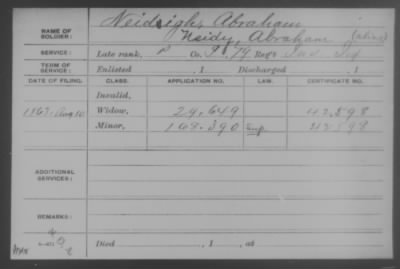 NAME OF SOLDIER: Neidsigh, Abraham
Neidy, Abraham (alias)
SERVICE: Late rank, P Co. 79 Reg't Ind. Inf.
TERM OF SERVICE: Enlisted , 1 Discharged , 1
DATE OF FILING. CLASS. APPLICATION NO. LAW. CERTIFICATE NO.
Invalid,
Aug 10 Widow, 29,649 42,598
Minor, 168,390 Sup.
ADDITIONAL SERVICES:
REMARKS:
Died , 1 , at